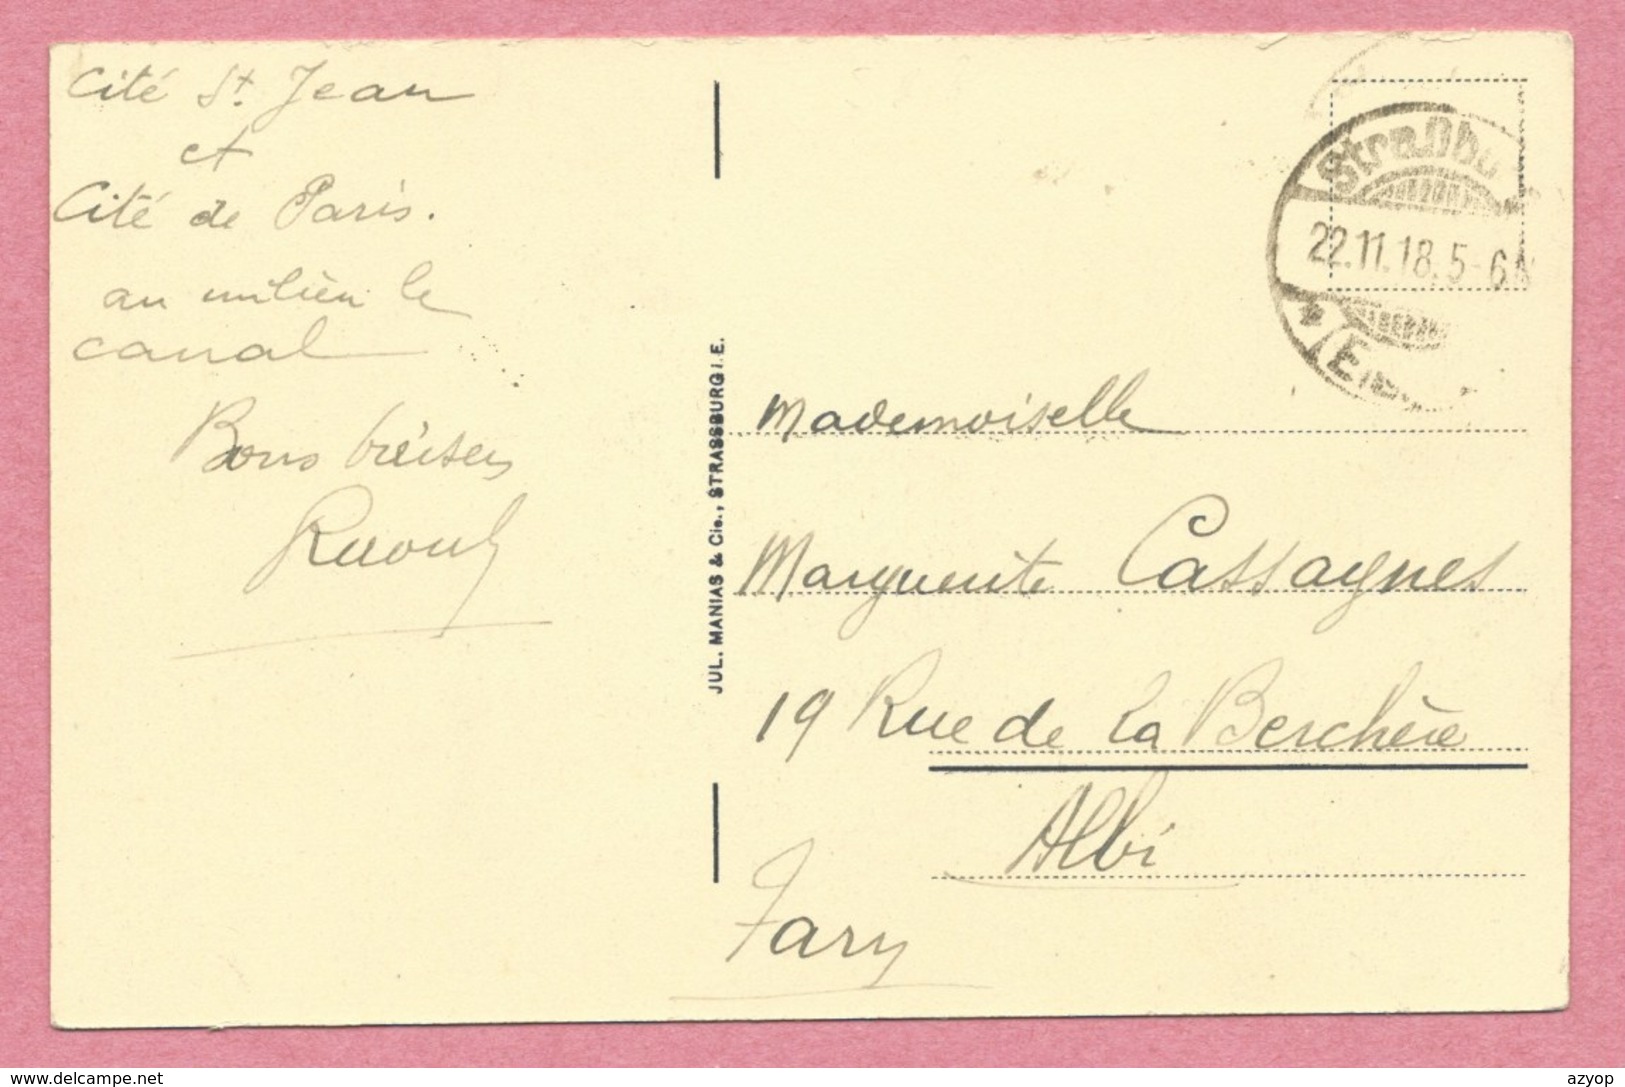 Cité St. Jean
et
Cité de Paris.
au milieu le
canal
Bons baisers
Raoul
JUL. MANIAS & Cie., STRASSBURG I. E.
Straßbu
22.11.18. 5-6 N
Mademoiselle
Marguerite Cassagnes
19 Rue de La Berchère
Albi
Tarn
delcampe.net
azyop